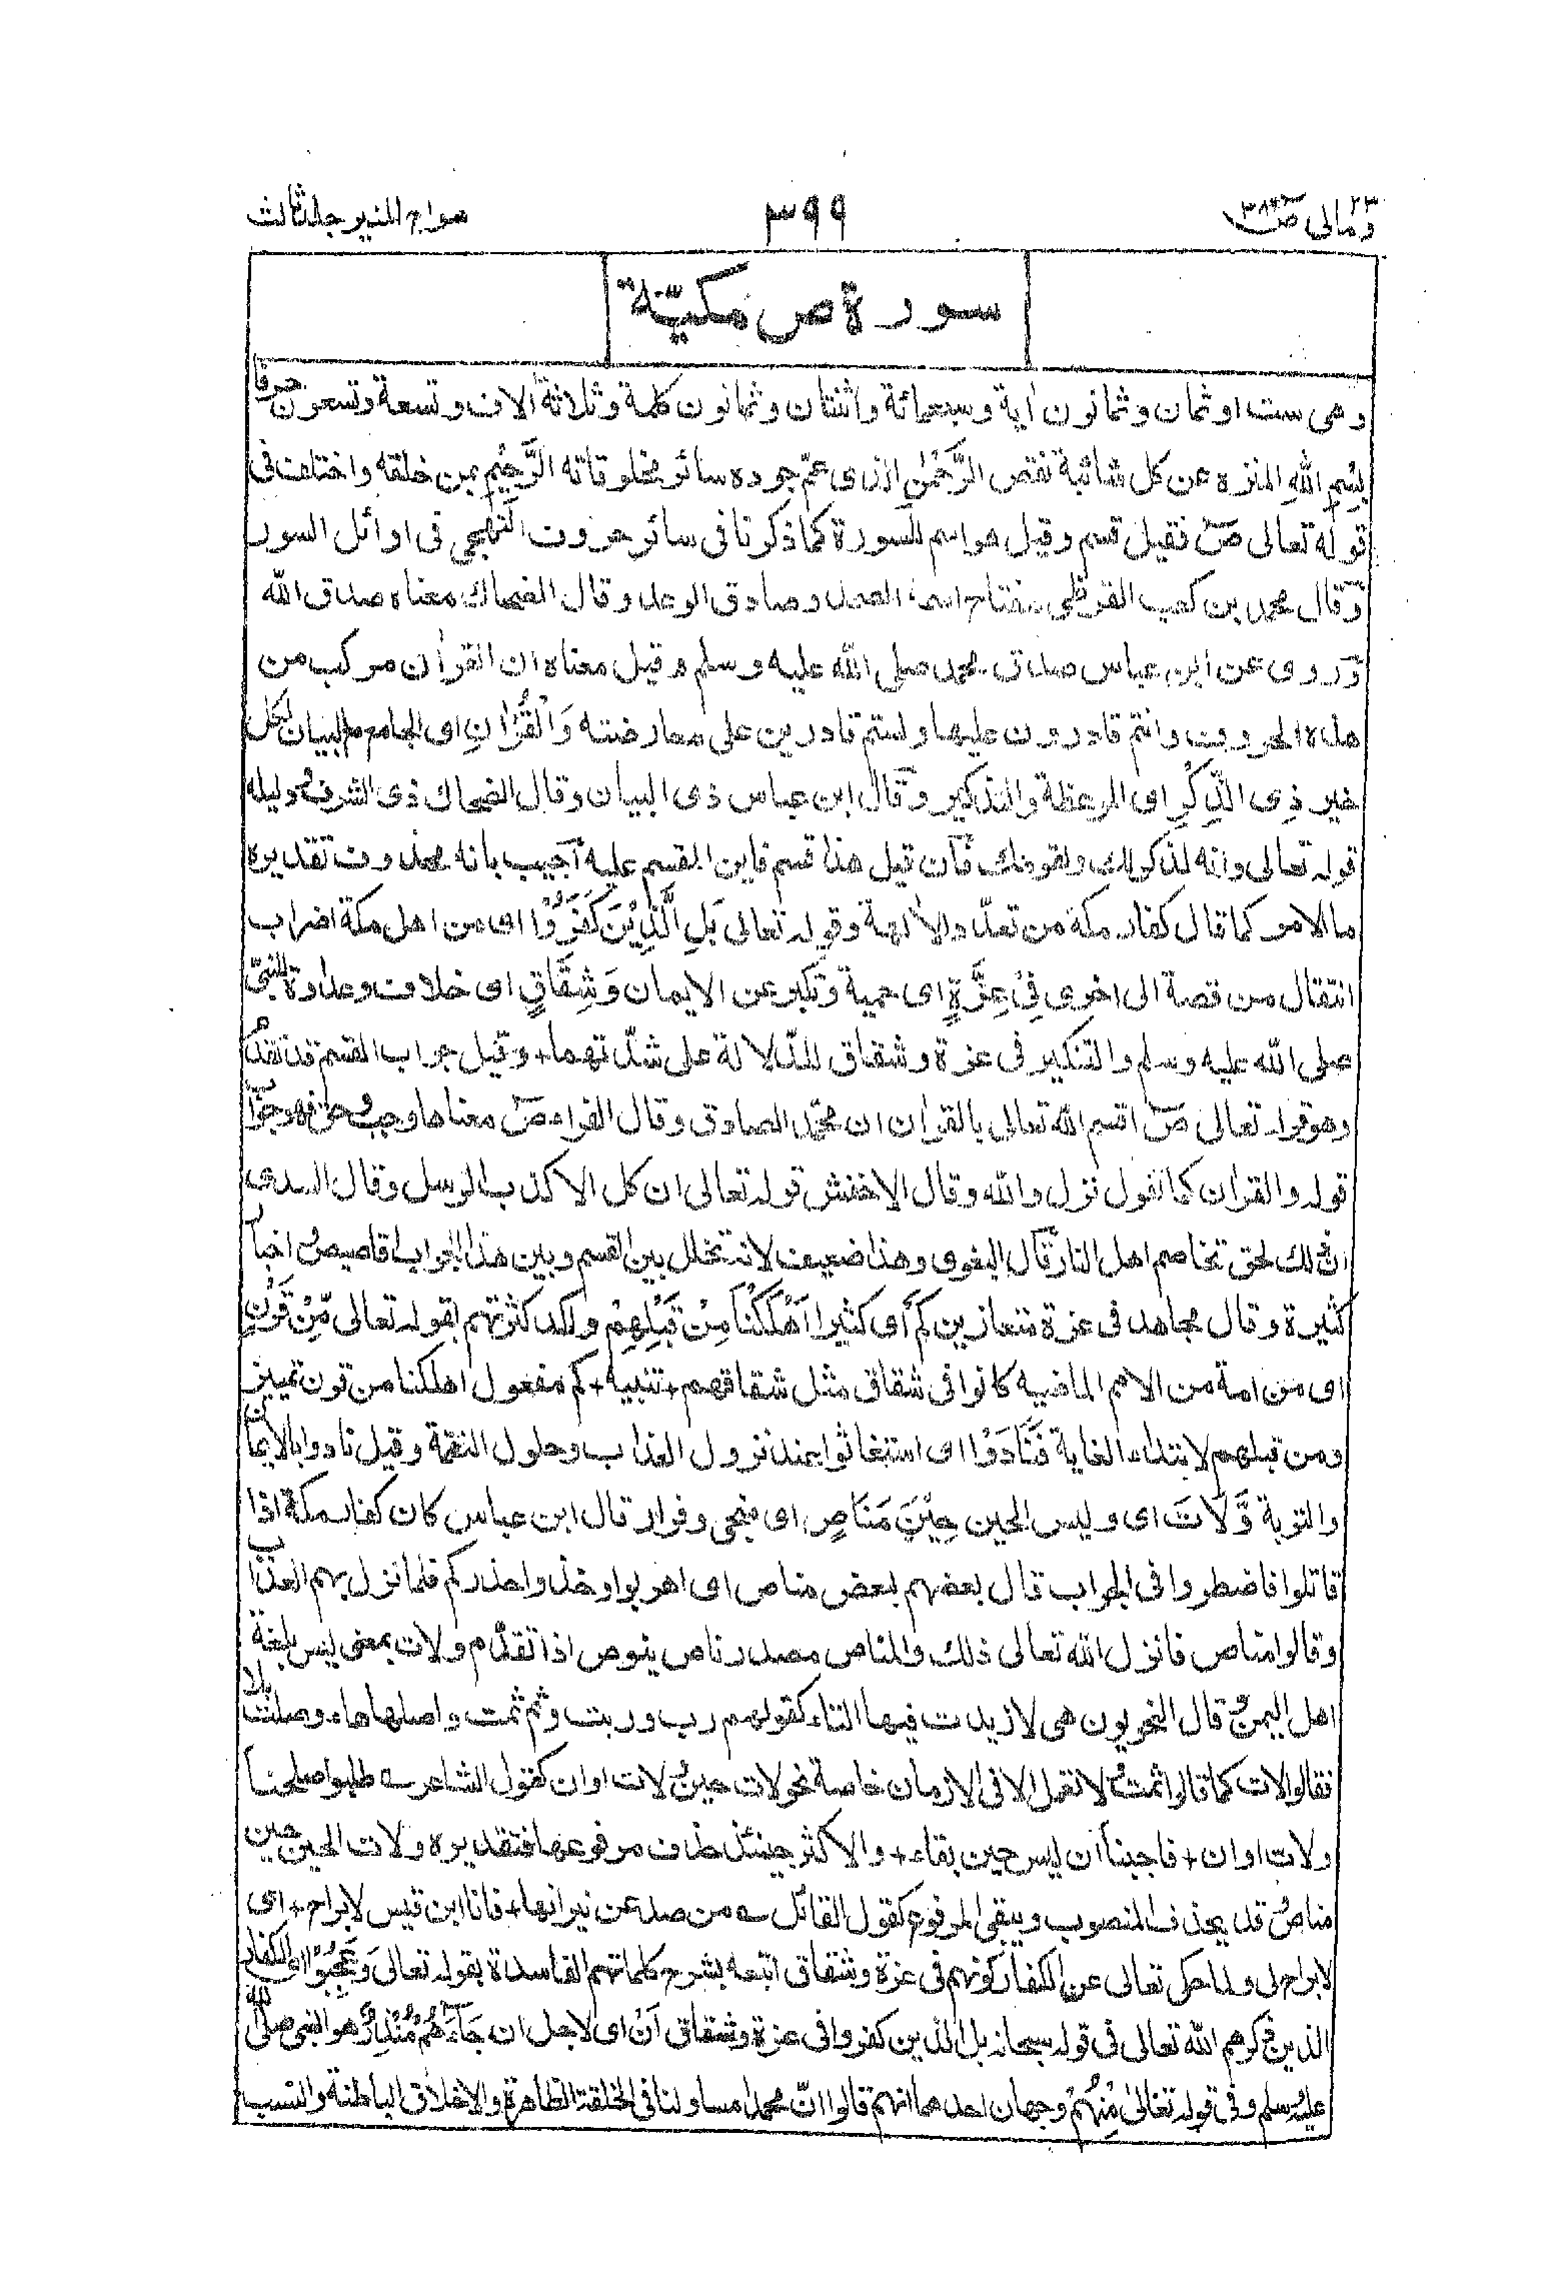 ومالى ٢٣ ص ٣٨
٣٩٩
سراج المنير جلد ثالث
سورة ص مكيّة
وهى ست او ثمان وثمانون اٰية وسبعمائة واثنتان وثمانون كلمة وثلاثة اٰلاف وتسعة وتسعون حرفا
بِسْمِ اللهِ المنزه عن كل شائبة نقص الرَّحْمٰنِ الذى عمّ جوده سائر مخلوقاته الرَّحِيْمِ بمن خلقه واختلف فى
قوله تعالى صٓ فقيل قسم وقيل هو اسم للسورة كما ذكرنا فى سائر حروف التهجى فى اوائل السور
وقال محمد بن كعب القرظى مفتاح اسمه الصمد وصادق الوعد وقال الضحاك معناه صدق الله
وروى عن ابن عباس صدق محمد صلى الله عليه وسلم وقيل معناه ان القراٰن مركب من
هذه الحروف وانتم قادرون عليها ولستم قادرين على معارضته وَالْقُرْاٰنِ اى الجامع مع البيان لكل
خير ذِى الذِّكْرِ اى الموعظة والتذكير وقال ابن عباس ذى البيان وقال الضحاك ذى الشرف ودليله
قوله تعالى وانه لذكر لك ولقومك فان قيل هذا قسم فاين المقسم عليه اجيب بانه محذوف تقديره
ما الامر كما قال كفار مكة من تعدّد الاٰلهة وقوله تعالى بَلِ الَّذِيْنَ كَفَرُوْا اى من اهل مكة اضراب
انتقال من قصة الى اخرى فِىْ عِزَّةٍ اى حمية وتكبر عن الايمان وَشِقَاقٍ اى خلاف وعداوة للنبىّ
صلى الله عليه وسلم والتنكير فى عزة وشقاق للدّلالة على شدّتهما+ وقيل جواب القسم قد تقدّم
وهو قوله تعالى صٓ اقسم الله تعالى بالقراٰن ان محمّد الصادق وقال الفراء صٓ معناها وجب وحق فهو جواب
قوله والقراٰن كما تقول نزل والله وقال الاخفش قوله تعالى ان كل الا كذب الرسل وقال السدى
ان ذلك لحق تخاصم اهل النار قال البغوى وهذا ضعيف لانه تخلل بين القسم وبين هذا الجواب اقاصيص واخبار
كثيرة وقال مجاهد فى عزة متعازين كَمْ اى كثيرا اَهْلَكْنَا مِنْ قَبْلِهِمْ واكد كثرتهم بقوله تعالى مِّنْ قَرْنٍ
اى من امة من الامم الماضية كانوا فى شقاق مثل شقاقهم + تنبيه + كم مفعول اهلكنا من قرن تمييز
ومن قبلهم لابتداء الغاية فَنَادَوْا اى استغاثوا عند نزول العذاب وحلول النقمة وقيل نادوا بالايمان
والتوبة وَّلَاتَ اى وليس الحين حِيْنَ مَنَاصٍ اى منجى وفرار قال ابن عباس كان كفار مكة اذا
قاتلوا فاضطروا فى الحراب قال بعضهم لبعض مناص اى اهربوا وخذوا حذركم فلما نزل بهم العذاب
وقالوا مناص فانزل الله تعالى ذلك والمناص مصدر ناص ينوص اذا تقدّم ولات بمعنى ليس بلغة
اهل اليمن وقال النحويون هى لا زيدت فيها التاء كقولهم رب وربت وثم ثمت واصلها هاء وصلت بلا
فقالوا لات كما قالوا ثمت ولا تعمل الا فى الازمان خاصة نحو لات حين ولات اوان كقول الشاعر ؎ طلبوا صلحنا
ولات اوان + فاجبنا ان ليس حين بقاء + والاكثر حينئذ حذف مرفوعها فتقديره ولات الحين حين
مناص وقد يحذف المنصوب ويبقى المرفوع كقول القائل ؎ من صد عن نيرانها + فانا ابن قيس لا براح + اى
لا براح لى ولما حكى تعالى عن الكفار كونهم فى عزة وشقاق اتبعه بشرح كلماتهم الفاسدة بقوله تعالى وَعَجِبُوْا اى الكفار
الذين ذكرهم الله تعالى فى قوله سبحانه بل الذين كفروا فى عزة وشقاق اَنْ اى لاجل ان جَآءَهُمْ مُّنْذِرٌ هو النبى صلى الله
عليه وسلم وفى قوله تعالىٰ مِّنْهُمْ وجهان احدهما انهم قالوا انّ محمدا مساو لنا فى الخلقة الظاهرة والاخلاق الباطنة والنسب